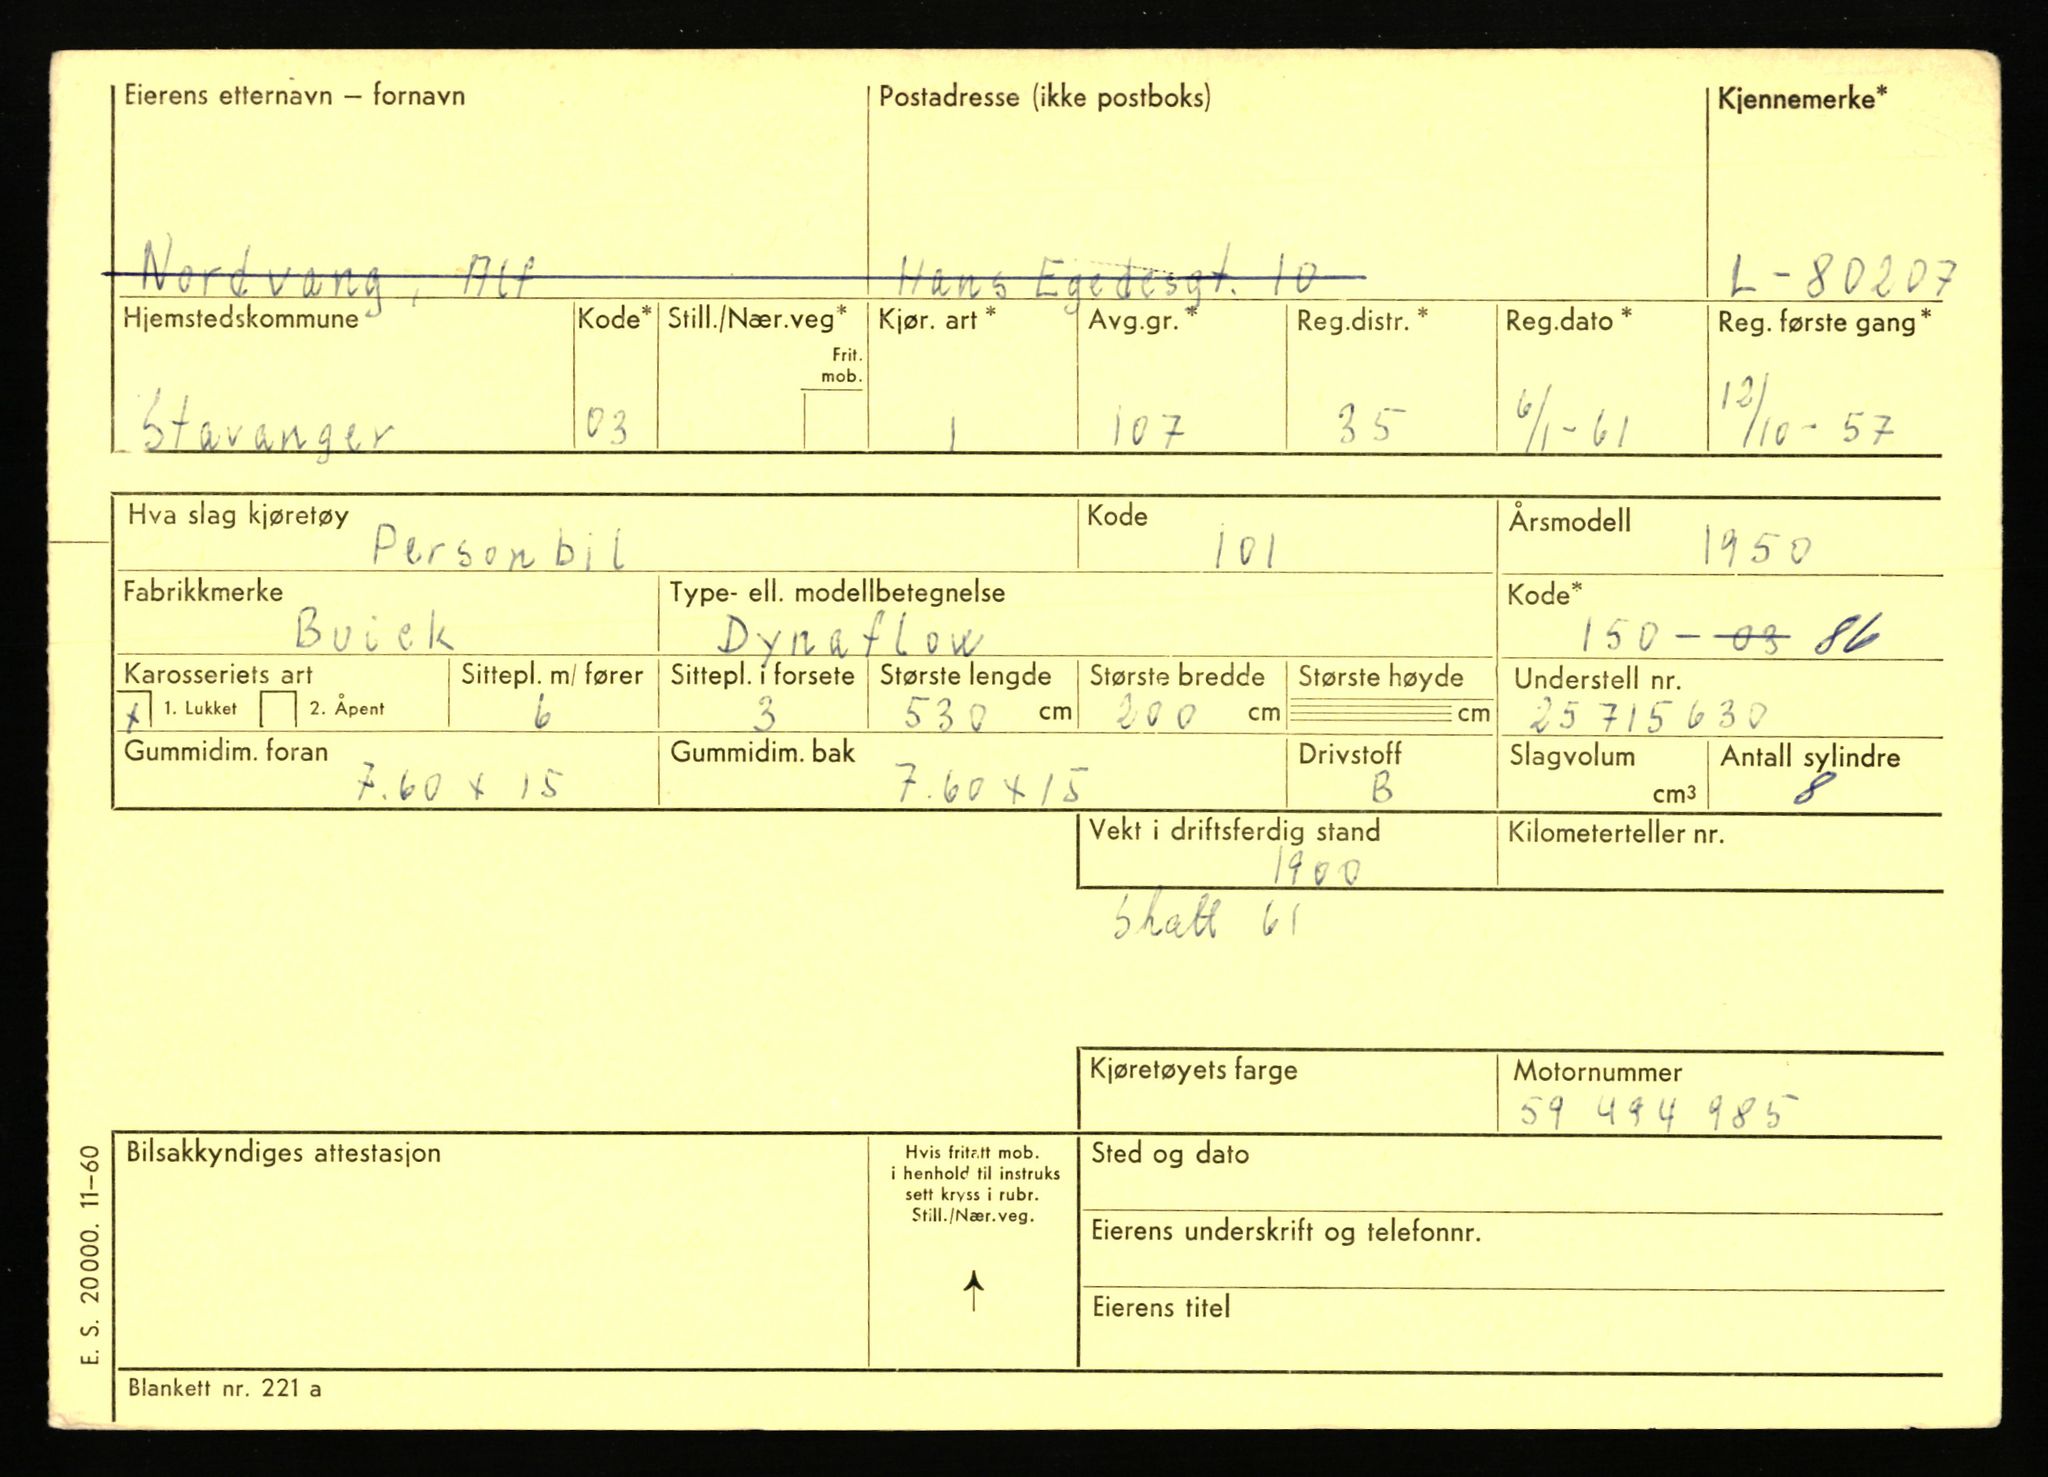 Eierens etternavn – fornavn Postadresse (ikke postboks) Kjennemerke*
Nordvang, Alf Hans Egedesgt. 10 L-80207
Hjemstedskommune Kode* Still./Nær.veg* Kjør. art* Avg.gr.* Reg.distr.* Reg.dato* Reg. første gang*
Frit.
mob.
Stavanger 03 1 107 35 6/1-61 12/10-57
Hva slag kjøretøy Kode Årsmodell
Personbil 101 1950
Fabrikkmerke Type- ell. modellbetegnelse Kode*
Buick Dynaflow 150-03 86
Karosseriets art Sittepl. m/ fører Sittepl. i forsete Største lengde Største bredde Største høyde Understell nr.
x 1. Lukket 2. Åpent 6 3 530 cm 200 cm cm 25715630
Gummidim. foran Gummidim. bak Drivstoff Slagvolum Antall sylindre
7.60 x 15 7.60 x 15 B cm³ 8
Vekt i driftsferdig stand Kilometerteller nr.
1900
Skatt 61
Kjøretøyets farge Motornummer
59 494 985
Bilsakkyndiges attestasjon Hvis fritatt mob. Sted og dato
i henhold til instruks
sett kryss i rubr.
Still./Nær.veg.
Eierens underskrift og telefonnr.
Eierens titel
E. S. 20000. 11–60
Blankett nr. 221 a